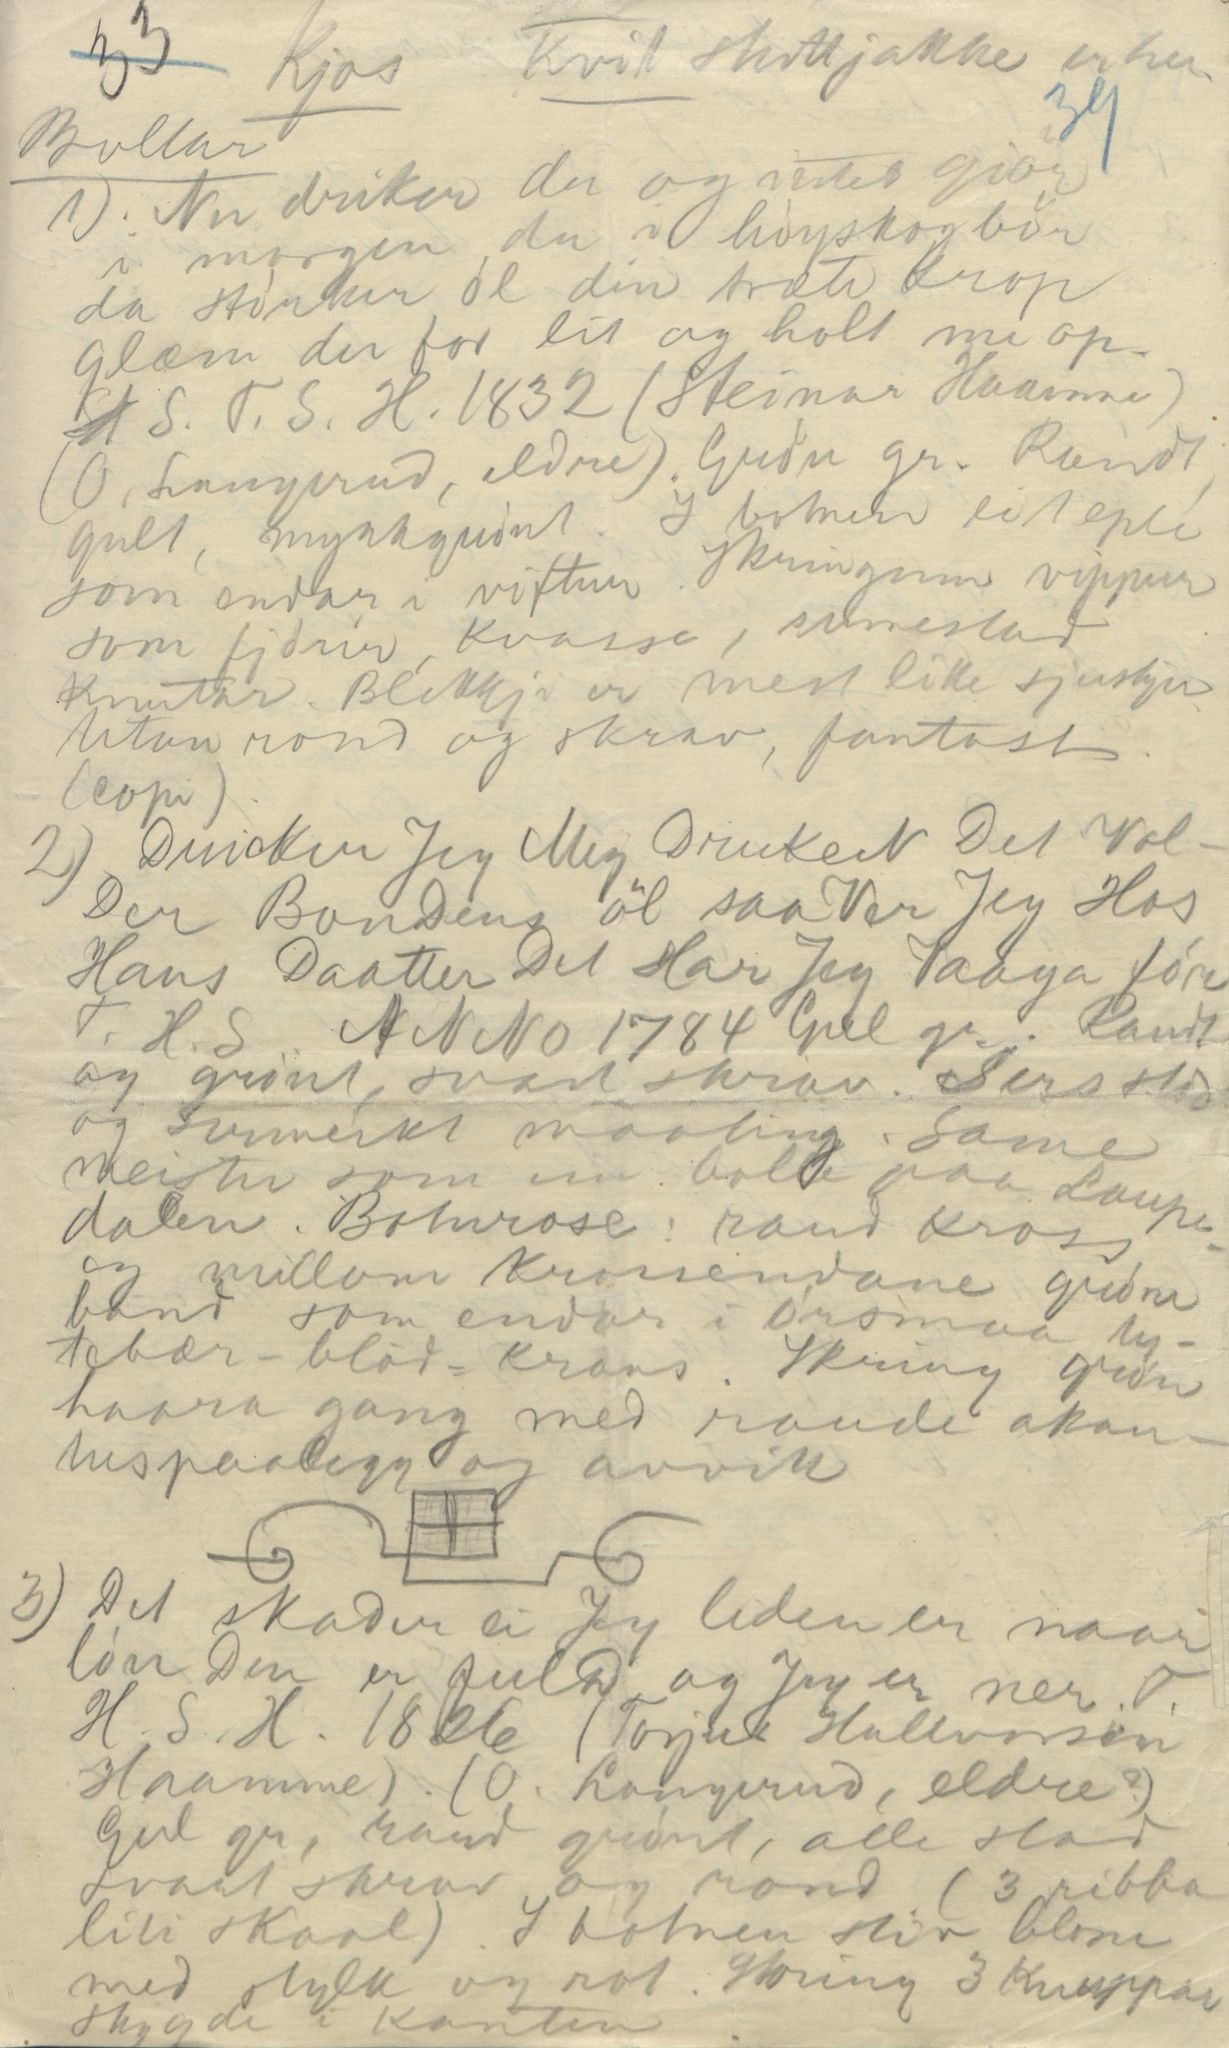 33 Kjos Kvit stuttjakke er her
34
Bollar
1). Nu driker du og intet giør
i morgen du i høyskog bør
da størker øl din træte krop
glæm der for lit og holt me op.
S. T. S. H. 1832 (Steinar Haamme)
(O. Langerud, eldre). Grøn gr. Raudt,
gult, myrkgrønt. I botnen eit eple
som endar i viftur. Skringum vippur
som fjører, kvasse, sumestad
knutar. Blekkji er mest like sjuskjen
Utan rond og skrav, fantast.
(copi).
2) Dricker Jeg Meg DruckeN Det Vol-
Der BonDens öl saa Ver Jeg Hos
Hans Daatter Det Har Jeg Vaaga før
T. H. S. ANNO 1784 Gul gr. Raudt
og grønt, svart skrav. Sers stød
og sermerkt maaling. Same
meister som ein bolle paa Laupe-
dalen. Botnrose: raud kross
og millom krossendane grøne
band som endar i ørsmaa ty-
tebær-blød-krans. Skring grøn
haara gang med raude akan-
tuspaalegg og avvik
3) Det skader ei Jeg leden er naar
løn Den er fulD og Jeg er ner. T.
H. S. H. 1826 (Torjus Hallvorson
Haamme). (O. Langerud, eldre?)
Gul gr, raud grønt, alle stad
svart skrav og rond (3 ribba
liti skaal). I botnen stiv blome
med stylk og rot. Skring 3 Knuppar
skygde i kanten.